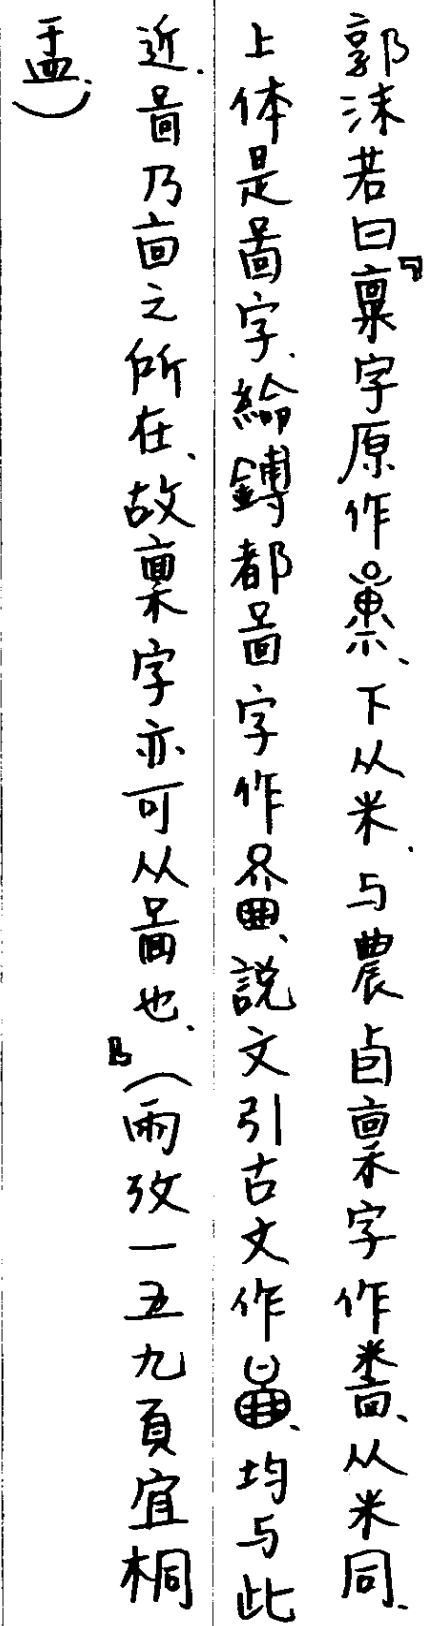 郭沫若曰『稟字原作、下从米、与農卣稟字作、从米同、
上体是啚字、綸鎛都啚字作、説文引古文作、均与此
近、啚乃㐭之所在、故稟字亦可从啚也、』（兩攷一五九頁宜桐
盂）